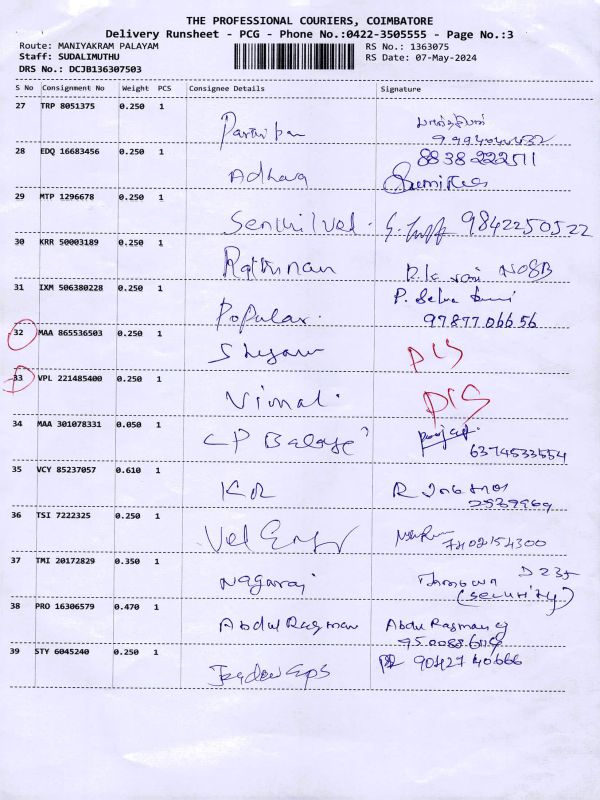 THE PROFESSIONAL COURIERS, COIMBATORE
Delivery Runsheet - PCG - Phone No.:0422-3505555 - Page No.:3
Route: MANIYAKRAM PALAYAM
RS No.: 1363075
Staff: SUDALIMUTHU
RS Date: 07-May-2024
DRS No.: DCJB136307503
S No Consignment No Weight PCS Consignee Details Signature
27 TRP 8051375 0.250 1
Parthiban
28 EDQ 16683456 0.250 1
8838222511
Adhava
29 MTP 1296678 0.250 1
Senthilvel. 9842250522
30 KRR 50003189 0.250 1
Rathinan
31 IXM 506380228 0.250 1
P. Selva
Popular. 97877 06656
32 MAA 865536503 0.250 1
Shyam DIS
33 VPL 221485400 0.250 1
Vimal. DIS
34 MAA 301078331 0.050 1
CP Balaji
6374533554
35 VCY 85237057 0.610 1
KR R
36 TSI 7222325 0.250 1
Vel
37 TMI 20172829 0.350 1
Nagaraj (security)
38 PRO 16306579 0.470 1
Abdul Ragman Abdu Ragman
39 STY 6045240 0.250 1
90427 40666